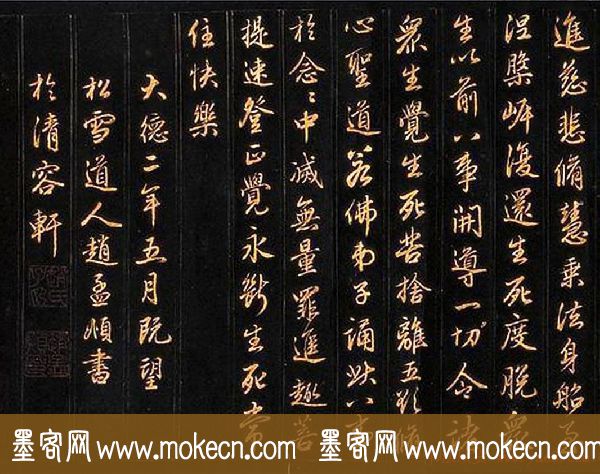 進慈悲脩慧乗法身船至
涅槃岸復還生死度脫衆
生以前八事開導一切令諸
衆生覺生死苦捨離五欲脩
心聖道若佛弟子誦此八事
於念〻中滅無量罪進趣菩
提速登正覺永斷生死常
住快樂
大德二年五月既望
松雪道人趙孟頫書
於清容軒
墨客网 www.mokecn.com 墨客网 www.mokecn.com